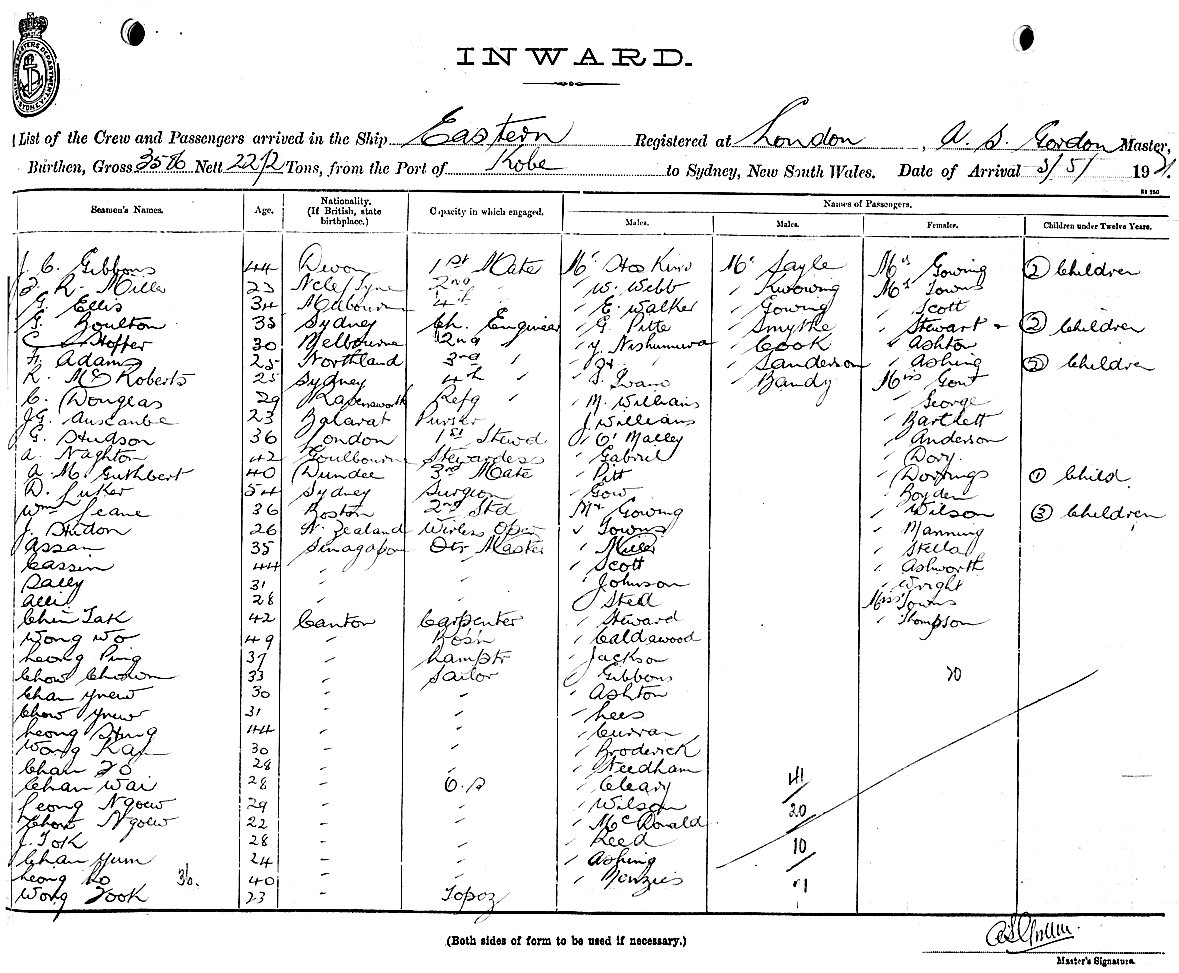 INWARD.
List of the Crew and Passengers arrived in the Ship Eastern Registered at London, A. S. Gordon Master,
Burthen, Gross 3586 Nett 2272 Tons, from the Port of Kobe to Sydney, New South Wales. Date of Arrival 3/5/ 19
Seamen's Names. Age. Nationality. (If British, state birthplace.) Capacity in which engaged. Names of Passengers.
Males. Males. Females. Children under Twelve Years.
J. C. Gibbons 44 Devon 1st Mate Mr Hoskins Mr Sayle Mrs Gowing (2) Children
R. Miller 23 Ncle/Tyne 2nd " W. Webb Kwong Towns
G. Ellis 34 Melbourne 4th " E. Walker Gowing Scott
G. Boulton 35 Sydney Ch. Engineer G. Pitte Smythe Stewart (2) Children
Hoffer 30 Melbourne 2nd " Y. Nishumura Cook Ashton
Adams 25 Northland 3rd " Sanderson Ashing (2) Children
R. McRoberts 25 Sydney 4th " Bandy Miss Gow
C. Douglas 29 Ravensworth Refg " M. Williams George
J.G. 23 Balarat Purser J Williams Bartlett
G. Hudson 36 London 1st Stewd O'Malley Anderson
A. Naghton 42 Goulbourn Stewardess Gabriel Dory
A. M. Cuthbert 40 Dundee 3rd Mate Pitt (1) Child
D. Luker 54 Sydney Surgeon Gow Boyden
Wm Leane 36 Boston 2nd Std Mr Gowing Wilson (3) Children
J. 26 N. Zealand Wirless Oper Towns Manning
Assan 35 Singapore Qtr Master Miller Stella
Cassim 44 " " Scott Ashworth
Sally 31 " " Johnson Wright
Alli 28 " " Sted Miss Towns
Chin Tak 42 Canton Carpenter Steward Thompson
Wong Wo 49 " Bos'n Caldawood
Leong Ping 37 " Lamptr Jackson
Chow 33 " Sailor Gibbons 20
Chan Yuew 30 " " Ashton
Chow Yuew 31 " " Lees
Leong Hung 44 " " Curran
Wong Kan 30 " " Broderick
Chan Fo 28 " " Steedham
Chan Wai 28 " O.S Cleary 41
Leong Ngoew 29 " " Wilson 20
Chow Ngoew 22 " " McDonald
J. Tok 28 " " Reed 10
Chan Yum 24 " " Ashing
Leong Lo 36. 40 " " Menzies 71
Wong Fook 23 Topaz
(Both sides of form to be used if necessary.)
Master's Signature.